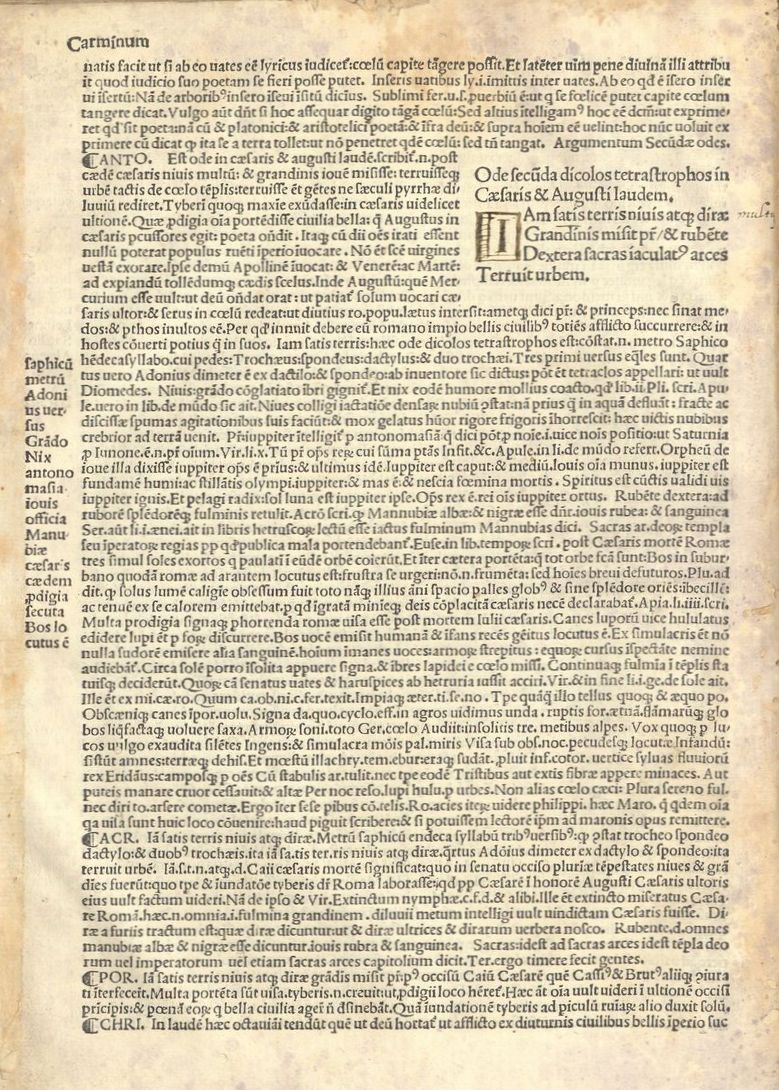 Carminum
natis facit ut si ab eo uates eē lyricus iudicet: cœlū capite tāgere possit. Et latēter uim pene diuinā illi attribu
it quod iudicio suo poetam se fieri posse putet. Inseris uatibus ly.i.imittis inter uates. Ab eo qđ ē isero inser
ui isertū: Nā de arborib⁹ insero iseui isitū dicius. Sublimi fer.u.s. puerbiū ē: ut q se fœlicē putet capite cœlum
tangere dicat. Vulgo aūt dñt si hoc assequar digito tāgā cœlū: Sed altius itelligam⁹ hoc eē dcm̄: ut exprime‑
ret qđ sit poeta: nā cū & platonici: & aristotelici poetā: & ifra deū: & supra hoiem eē uelint: hoc nūc uoluit ex
primere cū dicat ꝙ ita se a terra tollet: ut nō penetret qdē cœlū: sed tñ tangat. Argumentum Secūdæ odes.
CANTO. Est ode in cæsaris & augusti laudē. scribit̃.n.post
cædē cæsaris niuis multū: & grandinis iouē misisse: terruisseq;
urbē tactis de cœlo tēplis: terruisse ēt gētes ne sæculi pyrrhæ di/
luuiū rediret. Tyberi quoq; maxie exūdasse: in cæsaris uidelicet
ultionē. Quæ pdigia oia portēdisse ciuilia bella: q̄ Augustus in
cæsaris pcussores egit: poeta oñdit. Itaq; cū dii oēs irati essent
nullū poterat populus ruēti iperio iuocare. Nō ēt scē uirgines
uestā exorare. Ipse demū Apollinē iuocat: & Venerē: ac Martē:
ad expiandū tollēdumq; cædis scelus. Inde Augustū: quē Mer‑
curium esse uult: ut deū oñdat orat: ut patiat̃ solum uocari cæ/
Ode secūda dicolos tetrastrophos in
Cæsaris & Augusti laudem.
IAm satis terris niuis atq; diræ
Grandinis misit pr̄/ & rubēte
Dextera sacras iaculat⁹ arces
Terruit urbem.
saris ultor: & serus in cœlū redeat: ut diutius ro.popu.lætus intersit: ametq; dici pr̄: & princeps: nec sinat me‑
dos: & pthos inultos eē. Per qđ innuit debere eū romano impio bellis ciuilib⁹ totiēs afflicto succurrere: & in
hostes cōuerti potius q̄ in suos. Iam satis terris: hæc ode dicolos tetrastrophos est: cōstat.n.metro Saphico
hēdecasyllabo. cui pedes: Trochæus: spondeus: dactylus: & duo trochæi. Tres primi uersus eq̄les sunt. Quar
tus uero Adonius dimeter ē ex dactilo: & spondeo: ab inuentore sic dictus: pōt ēt tetraclos appellari: ut uult
Diomedes. Niuis: grādo cōglatiato ibri gignit̃. Et nix eodē humore mollius coacto. qđ lib.ii. Pli.scri. Apu‑
le.uero in lib.de mūdo sic ait. Niues colligi iactatiōe densaꝝ nubiū ꝯstat: nā prius q̄ in aquā defluāt: fractæ ac
discissæ spumas agitationibus suis faciūt: & mox gelatus hūor rigore frigoris ihorrescit: hæc uictis nubibus
crebrior ad terrā uenit. Pr̄: iuppiter itelligit̃ p antonomasiā q̄ dici pōt p noie.i.uice nois positio: ut Saturnia
p Iunone.ē.n.pr̄ oium. Vir.li.x. Tū pr̄ ops reꝝ cui sūma ptās Infit.&c. Apule. in li.de mūdo refert. Orpheū de
ioue illa dixisse iuppiter ops ē prius: & ultimus idē. Iuppiter est caput: & mediū. Iouis oia munus. iuppiter est
fundamē humi: ac stillātis olympi. iuppiter: & mas ē: & nescia fœmina mortis. Spiritus est cūctis ualidi uis
iuppiter ignis. Et pelagi radix: sol luna est iuppiter ipse. Ops rex ē. rei ois iuppiter ortus. Rubēte dextera: ad
ruborē splēdorēq; fulminis retulit. Acrō scri. ꝙ Mannubiæ albæ: & nigræ esse dñr. iouis rubea: & sanguinea
Ser.aūt li.i.ænei.ait in libris hetruscoꝝ lectū esse iactus fulminum Mannubias dici. Sacras ar.deoꝝ templa
seu iperatoꝝ regias pp qđ publica mala portendebant̃. Euse. in lib.tempoꝝ scri. post Cæsaris mortē Romæ
tres simul soles exortos q paulati i eūdē orbē coierūt. Et iter cætera portēta: q̄ tot orbe fcā sunt: Bos in subur‑
bano quodā romæ ad arantem locutus est: frustra se urgeri: nō.n.frumēta: sed hoies breui defuturos. Plu.ad
dit. ꝙ solus lumē caligie obsessum fuit toto nāq; illius āni spacio palles glob⁹ & sine splēdore oriēs: ibecillē:
ac tenuē ex se calorem emittebat. p qđ igratā minieq; deis cōplacitā cæsaris necē declarabat̃. Apia.li.iiii.scri.
Multa prodigia signaq; phorrenda romæ uisa esse post mortem Iulii cæsaris. Canes luporū uice hululatus
edidere lupi ēt p foꝝ discurrere. Bos uocē emisit humanā & ifans recēs gēitus locutus ē. Ex simulacris ēt nō
nulla sudorē emisere alia sanguinē. hoium imanes uoces: armoꝝ strepitus: equoꝝ cursus ispectāte nemine
audiebāt̃. Circa solē porro isolita appuere signa. & ibres lapidei e cœlo missi. Continuaq; fulmia i tēplis sta
tuisq; deciderūt. Quoꝝ cā senatus uates & haruspices ab hetruria iussit acciri. Vir.& in fine li.i.ge.de sole ait.
Ille ēt ex mi.cæ.ro. Quum ca.ob.ni.c.fer.texit. Impiaq; æter.ti.se.no. Tpe quāq̄ illo tellus quoq; & æquo po.
Obscæniq; canes ipor.uolu. Signa da.quo.cyclo.eff.in agros uidimus unda. ruptis for.ætnā. flāmarūq; glo
bos liq̄factaq; uoluere saxa. Armoꝝ soni.toto Ger.cœlo Audiit: insolitis tre.metibus alpes. Vox quoq; p lu‑
cos uulgo exaudita silētes Ingens: & simulacra mōis pal.miris Visa sub obs.noc.pecudesq; locutæ Infandū:
sistūt amnes: terræq; dehis. Et mœstū illachry.tem.ebur: eraq; sudāt. pluit inf.cotor.uertice syluas fluuiorū
rex Eridāus: camposq; p oēs Cū stabulis ar.tulit. nec tpe eodē Tristibus aut extis fibræ appere minaces. Aut
puteis manare cruor cessauit: & altæ Per noc reso.lupi hulu.p urbes. Non alias cœlo cæci: Plura sereno ful.
nec diri to.arsere cometæ. Ergo iter sese pibus cō.telis. Ro.acies iteꝝ uidere philippi. hæc Maro. q qdem oia
qa uisa sunt huic loco cōuenire: haud piguit scribere: & si potuissem lectorē ipm ad maronis opus remittere.
ACR. Iā satis terris niuis atq; diræ. Metrū saphicū endeca syllabū trib⁹ uersib⁹: ꝙ ꝯstat trocheo spondeo
dactylo: & duob⁹ trochæis. ita iā sa.tis ter.ris niuis atq; diræ. q̄rtus Adōius dimeter ex dactylo & spondeo: ita
terruit urbē. Iā.s.t.n.atq;.d. Caii cæsaris mortē significat: quo in senatu occiso pluriæ tēpestates niues & grā
dies fuerūt: quo tpe & iundatōe tyberis dr̄ Roma laborasse: qđ pp Cæsarē i honorē Augusti Cæsaris ultoris
eius uult factum uideri. Nā de ipso & Vir. Extinctum nymphæ.c.f.d.& alibi. Ille ēt extincto miseratus Cæsa‑
re Romā. hæc.n.omnia.i.fulmina grandinem. diluuii metum intelligi uult uindictam Cæsaris fuisse. Di‑
ræ a furiis tractum est: quæ diræ dicuntur: ut & diræ ultrices & dirarum uerbera nosco. Rubente.d.omnes
manubiæ albæ & nigræ esse dicuntur. iouis rubra & sanguinea. Sacras: idest ad sacras arces idest tēpla deo
rum uel imperatorum uel etiam sacras arces capitolium dicit. Ter. ergo timere fecit gentes.
POR. Iā satis terris niuis atq; diræ grādis misit pr̄: p⁹ occisū Caiū Cæsarē quē Cassi⁹ & Brut⁹ aliiq; ꝯiura
ti iterfeceīt. Multa portēta sūt uisa. tyberis.n.creuit: ut pdigii loco hēret̃. Hæc āt oia uult uideri i ultionē occisi
principis: & pœnā eoꝝ q bella ciuilia ageī ñ dsinebāt. Quā iundationē tyberis ad piculū ruiaꝝ alio duxit solū.
CHRI. In laudē hæc octauiāi tendūt quē ut deū hortat̃ ut afflicto ex diuturnis ciuilibus bellis iperio suc
saphicū
metrū
Adoni
us uer‑
sus
Grādo
Nix
antono
masia
iouis
officia
Manu‑
biæ
cæsaris
cædem
pdigia
secuta
Bos lo
cutus ē